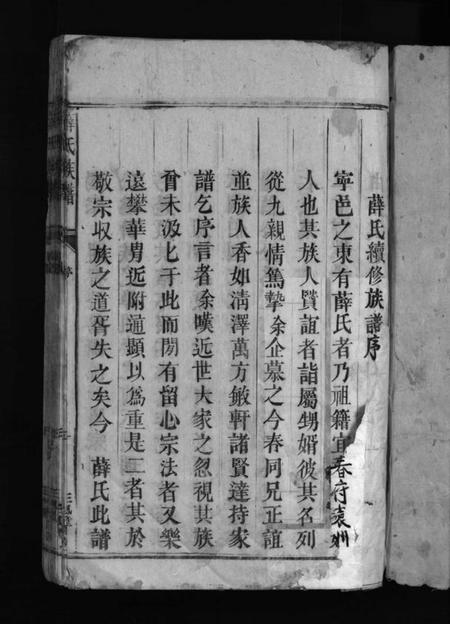 薛氏續修族譜序
寧邑之東有薛氏者乃祖籍宜春府袁州
人也其族人賢誼者詣屬甥婿彼其名列
從九親情篤摯余企慕之今春同兄正誼
並族人香如清澤萬方敏軒諸賢達持家
譜乞序言者余嘆近世大家之忽視其族
曾未汲匕于此而閒有留心宗法者又樂
遠攀華冑近附通顯以為重是二者其於
敬宗收族之道胥失之矣今 薛氏此譜
薛氏族譜
序